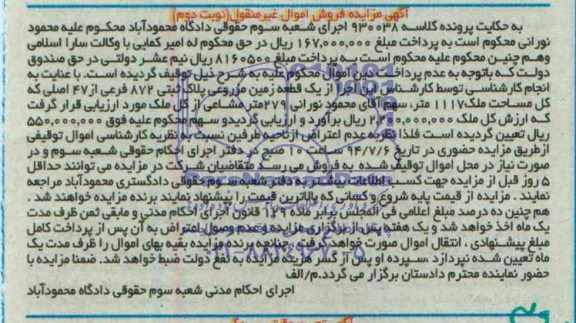 آگهی مزایده فروش اموال غیرمنقول(نوبت دوم)
به حکایت پرونده کلاسه ۹۳۰۰۳۸ اجرای شعبه سوم حقوقی دادگاه محمودآباد محکوم علیه محمود
نورانی محکوم است به پرداخت مبلغ ۱۶۷,۰۰۰,۰۰۰ ریال در حق محکوم له امیر کمایی با وکالت سارا اسلامی
وهم چنین محکوم علیه محکوم است به پرداخت مبلغ ۸۱۶۰۵۰۰ ریال نیم عشر دولتی در حق صندوق
دولت که باتوجه به عدم پرداخت دین اموال محکوم علیه به شرح ذیل توقیف گردیده است. با عنایت به
انجام کارشناسی توسط کارشناسان به اجرا از یک قطعه زمین مزروعی پلاک ثبتی ۸۷۲ فرعی از۴۷ اصلی که
کل مساحت ملک۱۱۱۷ متر، سهم آقای محمود نورانی ۲۷۹متر مشاعی از کل ملک مورد ارزیابی قرار گرفت
که ارزش کل ملک ۲,۲۰۰,۰۰۰,۰۰۰ ریال برآورد و ارزیابی گردیدو سهم محکوم علیه فوق ۵۵۰,۰۰۰,۰۰۰
ریال تعیین گردیده است فلذا نظربه عدم اعتراض از ناحیه طرفین نسبت به نظریه کارشناسی اموال توقیفی
ازطریق مزایده حضوری در تاریخ ۹۴/۷/۶ ساعت ۱۰ صبح در دفتر اجرای احکام حقوقی شعبه سوم و در
صورت نیاز در محل اموال توقیف شده به فروش می رسد متقاضیان شرکت در مزایده می توانند حداقل
۵ روز قبل از مزایده جهت کسب اطلاعات بیشتر به دفتر شعبه سوم حقوقی دادگستری محمودآباد مراجعه
نمایند . مزایده از قیمت پایه شروع و کسانی که بالاترین قیمت را پیشنهاد نمایند برنده مزایده خواهند شد .
هم چنین ده درصد مبلغ اعلامی فی المجلس برابر ماده ۱۲۹ قانون اجرای احکام مدنی و مابقی ثمن ظرف مدت
یک ماه اخذ خواهد شد و یک هفته پس از برگزاری مزایده و عدم وصول اعتراض به آن پس از پرداخت کامل
مبلغ پیشنهادی ، انتقال اموال صورت خواهد گرفت . چنانچه برنده مزایده بقیه بهای اموال را ظرف مدت یک
ماه تعیین شده نپردازد ،سپرده او پس از کسر هزینه مزایده به نفع دولت ضبط خواهد شد. ضمنا مزایده با
حضور نماینده محترم دادستان برگزار می گردد.م/الف
اجرای احکام مدنی شعبه سوم حقوقی دادگاه محمودآباد